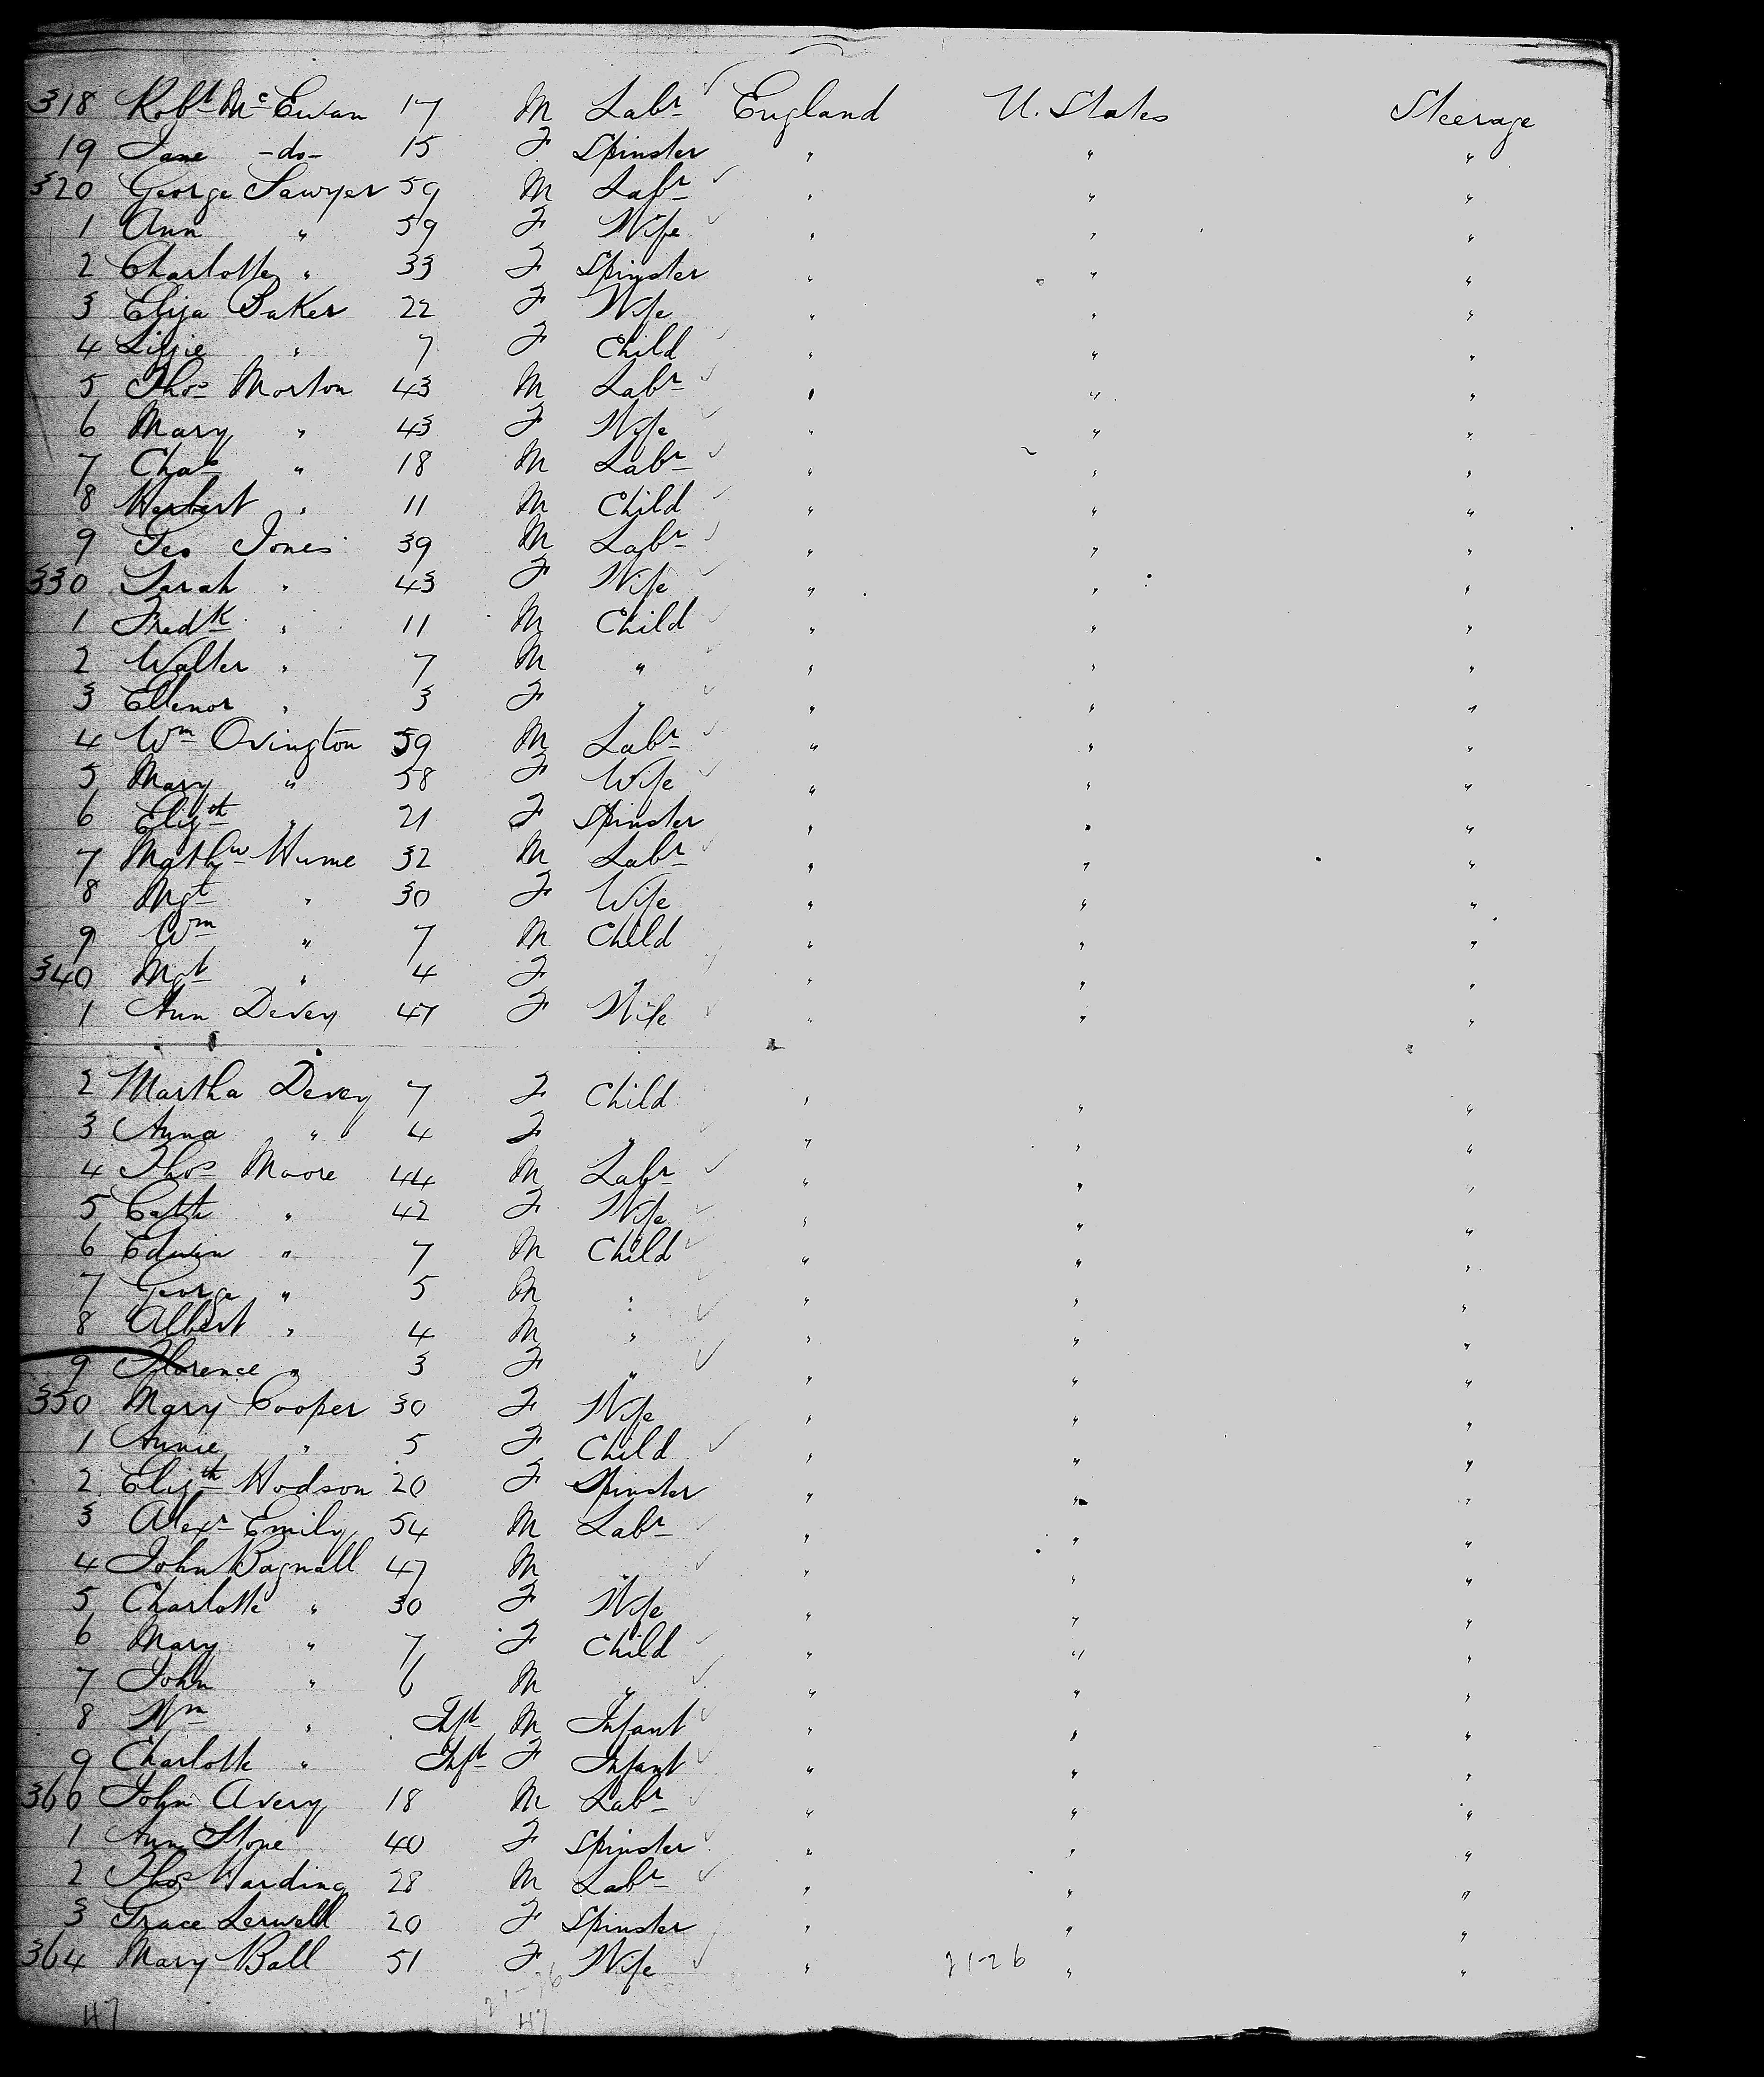 318 Robt McEwan 17 M Labr England U. States Steerage
19 Jane -do- 15 F Spinster " " "
320 George Sawyer 59 M Labr " " "
1 Ann " 59 F Wife " " "
2 Charlotte " 33 F Spinster " " "
3 Eliza Baker 22 F Wife " " "
4 Lizzie " 7 F Child " " "
5 Thos Morton 43 M Labr " " "
6 Mary " 43 F Wife " " "
7 Chas " 18 M Labr " " "
8 Herbert " 11 M Child " " "
9 Geo Jones 39 M Labr " " "
330 Sarah " 43 F Wife " " "
1 Fredk " 11 M Child " " "
2 Walter " 7 M " " " "
3 Ellenor " 3 F " " " "
4 Wm Ovington 59 M Labr " " "
5 Mary " 58 F Wife " " "
6 Elizth " 21 F Spinster " " "
7 Mathw Hume 32 M Labr " " "
8 Mgt " 30 F Wife " " "
9 Wm " 7 M Child " " "
340 Mgt " 4 F " " "
1 Ann Devey 47 F Wife " " "
2 Martha Devey 7 F Child " " "
3 Anna " 4 F " " " "
4 Thos Moore 44 M Labr " " "
5 Cath " 42 F Wife " " "
6 Edwin " 7 M Child " " "
7 George " 5 M " " " "
8 Albert " 4 M " " " "
9 Florence " 3 F " " " "
350 Mary Cooper 30 F Wife " " "
1 Annie " 5 F Child " " "
2 Elizth Hodson 20 F Spinster " " "
3 Alexr Emily 54 M Labr " " "
4 John Bagnall 47 M " " " "
5 Charlotte " 30 F Wife " " "
6 Mary " 7 F Child " " "
7 John " 6 M " " " "
8 Wm " Inft M Infant " " "
9 Charlotte " Inft F Infant " " "
360 John Avery 18 M Labr " " "
1 Ann Stone 40 F Spinster " " "
2 Thos Harding 28 M Labr " " "
3 Grace Lerwell 20 F Spinster " " "
364 Mary Ball 51 F Wife " 21-26 " "
47 21-26
47